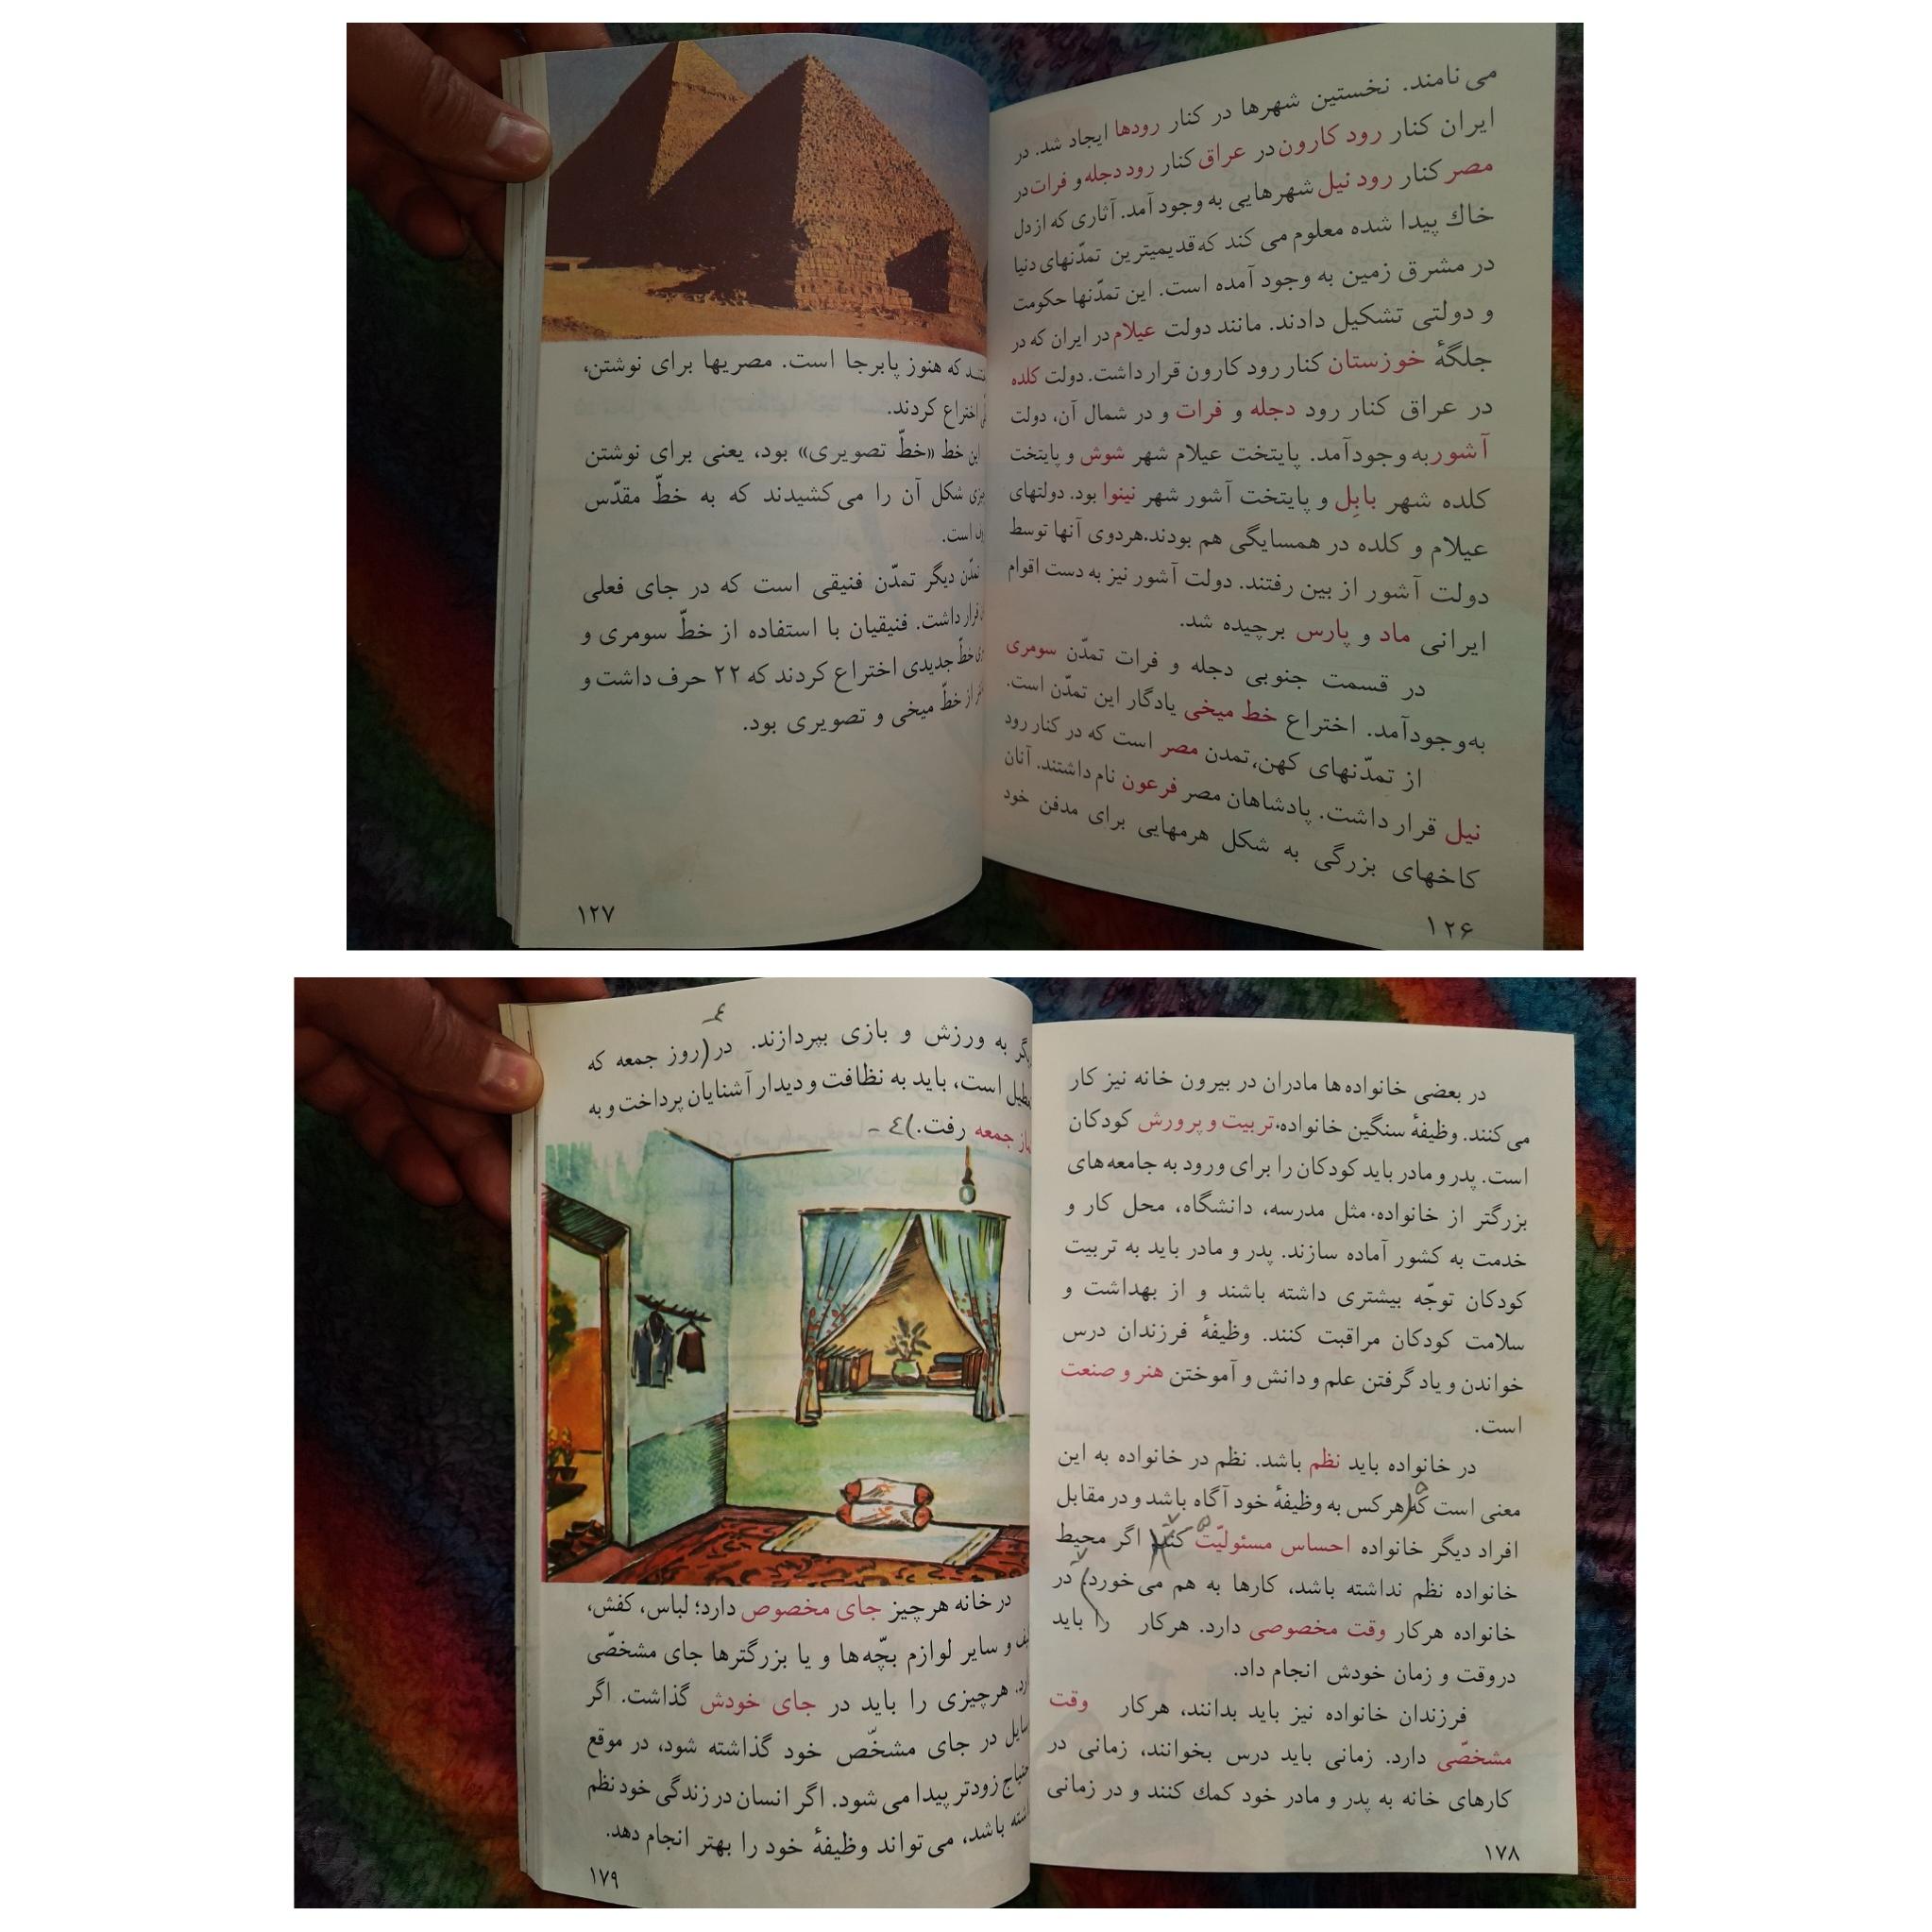 می‌نامند. نخستین شهرها در کنار رودها ایجاد شد. در
ایران کنار رود کارون در عراق کنار رود دجله و فرات در
مصر کنار رود نیل شهرهایی به وجود آمد. آثاری که از دل
خاك پیدا شده معلوم می کند که قدیمیترین تمدّنهای دنیا
در مشرق زمین به وجود آمده است. این تمدّنها حکومت
و دولتی تشکیل دادند. مانند دولت عیلام در ایران که در
جلگهٔ خوزستان کنار رود کارون قرار داشت. دولت کلده
در عراق کنار رود دجله و فرات و در شمال آن، دولت
آشور به وجود آمد. پایتخت عیلام شهر شوش و پایتخت
کلده شهر بابِل و پایتخت آشور شهر نینوا بود. دولتهای
عیلام و کلده در همسایگی هم بودند.هردوی آنها توسط
دولت آشور از بین رفتند. دولت آشور نیز به دست اقوام
ایرانی ماد و پارس برچیده شد.
در قسمت جنوبی دجله و فرات تمدّن سومری
به‌وجودآمد. اختراع خط میخی یادگار این تمدّن است.
از تمدّنهای کهن، تمدن مصر است که در کنار رود
نیل قرار داشت. پادشاهان مصر فرعون نام داشتند. آنان
کاخهای بزرگی به شکل هرمهایی برای مدفن خود
۱۲۶
که هنوز پابرجا است. مصریها برای نوشتن،
اختراع کردند.
این خط «خطّ تصویری» بود، یعنی برای نوشتن
شکل آن را می‌کشیدند که به خطّ مقدّس
است.
تمدّن دیگر تمدّن فنیقی است که در جای فعلی
قرار داشت. فنیقیان با استفاده از خطّ سومری و
خطّ جدیدی اختراع کردند که ۲۲ حرف داشت و
از خطّ میخی و تصویری بود.
۱۲۷
در بعضی خانواده‌ها مادران در بیرون خانه نیز کار
می‌کنند. وظیفهٔ سنگین خانواده، تربیت و پرورش کودکان
است. پدر و مادر باید کودکان را برای ورود به جامعه‌های
بزرگتر از خانواده، مثل مدرسه، دانشگاه، محل کار و
خدمت به کشور آماده سازند. پدر و مادر باید به تربیت
کودکان توجّه بیشتری داشته باشند و از بهداشت و
سلامت کودکان مراقبت کنند. وظیفهٔ فرزندان درس
خواندن و یاد گرفتن علم و دانش و آموختن هنر و صنعت
است.
در خانواده باید نظم باشد. نظم در خانواده به این
معنی است که هرکس به وظیفهٔ خود آگاه باشد و در مقابل
افراد دیگر خانواده احساس مسئولیّت کند. اگر محیط
خانواده نظم نداشته باشد، کارها به هم می‌خورد. در
خانواده هرکار وقت مخصوصی دارد. هرکار را باید
دروقت و زمان خودش انجام داد.
فرزندان خانواده نیز باید بدانند، هرکار وقت
مشخصّی دارد. زمانی باید درس بخوانند، زمانی در
کارهای خانه به پدر و مادر خود کمك کنند و در زمانی
۱۷۸
به ورزش و بازی بپردازند. در (روز جمعه که
است، باید به نظافت و دیدار آشنایان پرداخت و به
جمعه رفت.)
در خانه هرچیز جای مخصوص دارد؛ لباس، کفش،
و سایر لوازم بچّه‌ها و یا بزرگترها جای مشخصّی
هرچیزی را باید در جای خودش گذاشت. اگر
در جای مشخّص خود گذاشته شود، در موقع
زودتر پیدا می‌شود. اگر انسان در زندگی خود نظم
باشد، می‌تواند وظیفهٔ خود را بهتر انجام دهد.
۱۷۹